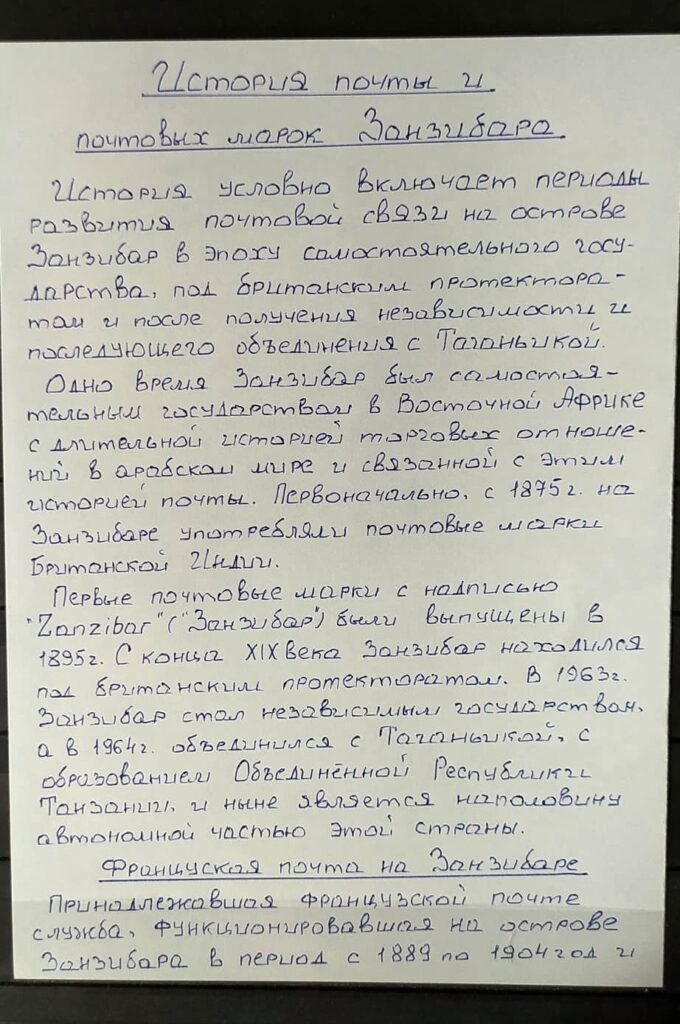 История почты и
почтовых марок Занзибара
История условно включает периоды
развития почтовой связи на острове
Занзибар в эпоху самостоятельного госу-
дарства, под британским протектора-
том и после получения независимости и
последующего объединения с Таганьикой.
Одно время Занзибар был самостоя-
тельным государством в Восточной Африке
с длительной историей торговых отноше-
ний в арабском мире и связанной с этим
историей почты. Первоначально, с 1875г. на
Занзибаре употребляли почтовые марки
Британской Индии.
Первые почтовые марки с надписью
"Zanzibar" ("Занзибар") были выпущены в
1895г. С конца XIX века Занзибар находился
под британским протекторатом. В 1963г.
Занзибар стал независимым государством,
а в 1964г. объединился с Таганьикой, с
образованием Объединённой Республики
Танзании, и ныне является наполовину
автономной частью этой страны.
Француская почта на Занзибаре
Принадлежавшая французской почте
служба, функционировавшая на острове
Занзибара в период с 1889 по 1904 год и